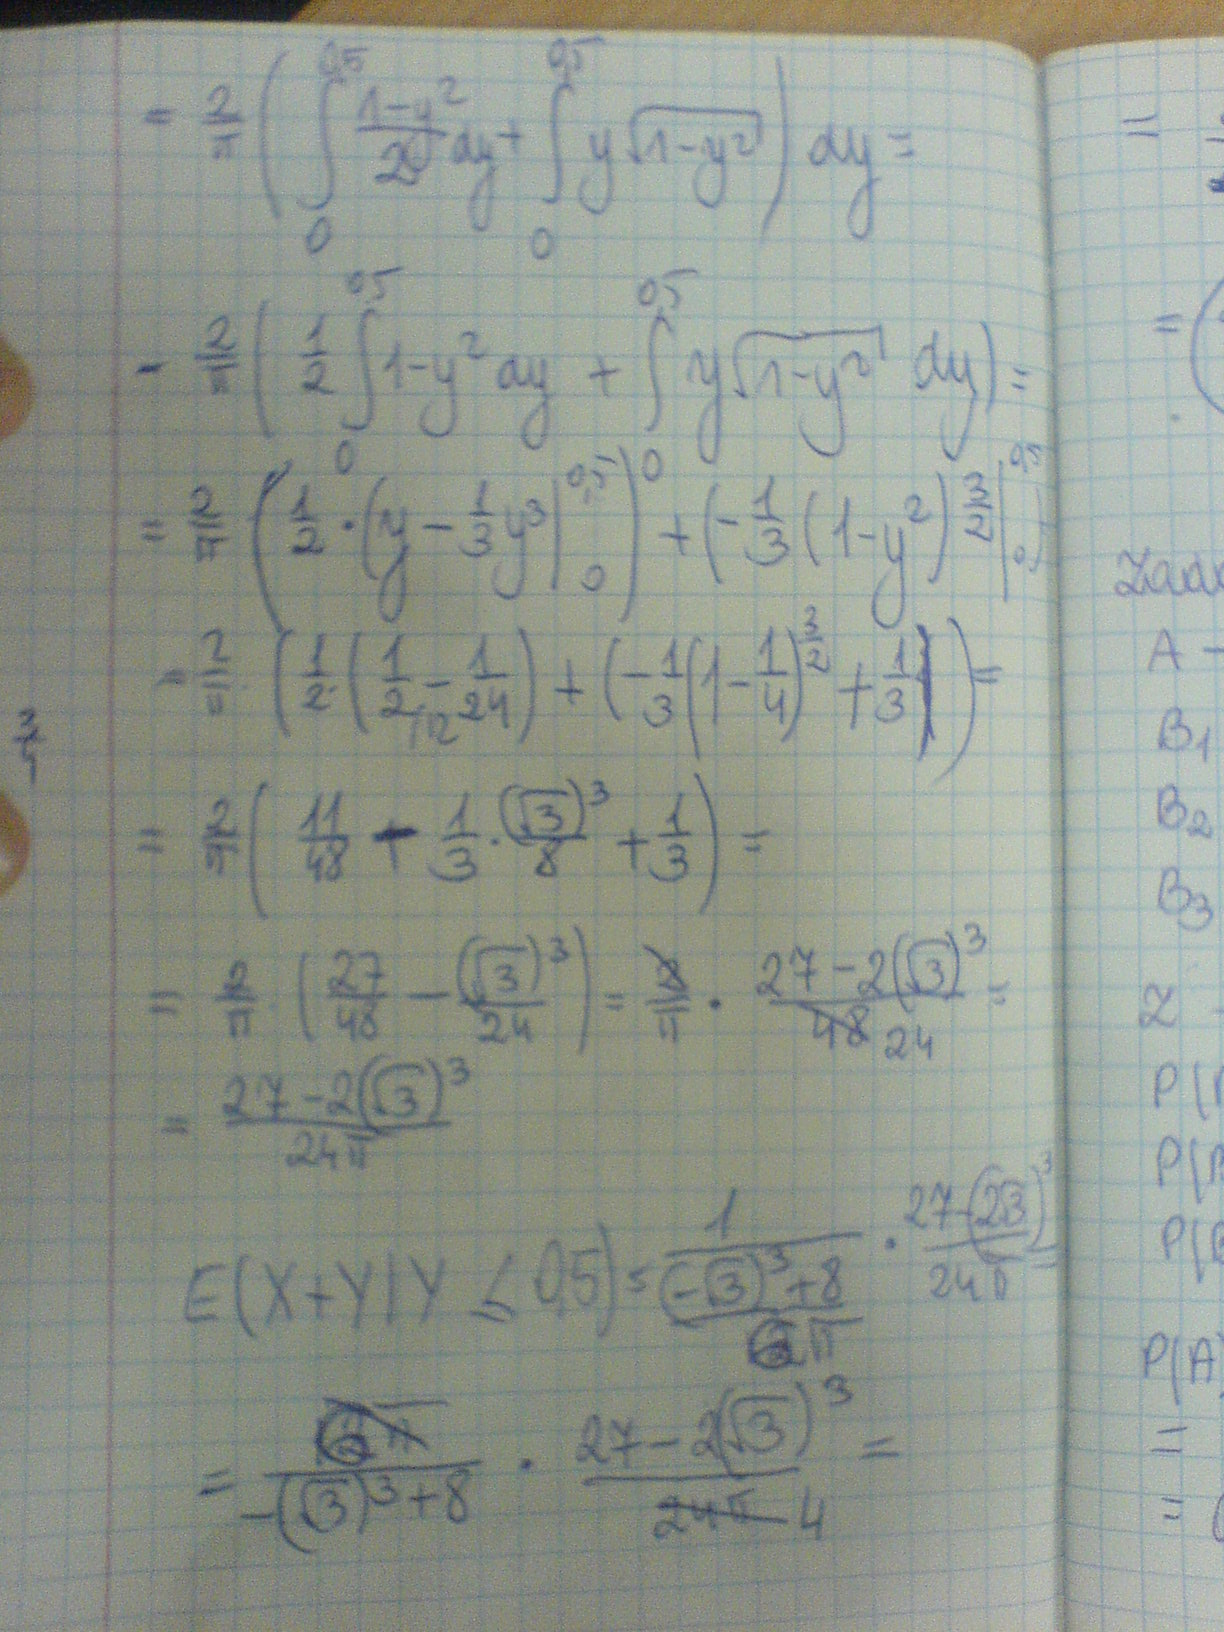 = 2/π ( ∫₀^0,5 (1-y²)/2 dy + ∫₀^0,5 y√(1-y²) ) dy =
= 2/π ( 1/2 ∫₀^0,5 1-y² dy + ∫₀^0,5 y√(1-y²) dy ) =
= 2/π ( 1/2 · (y - 1/3 y³ |₀^0,5 ) + ( -1/3 (1-y²)^(3/2) |₀^0,5 )
= 2/π ( 1/2 ( 1/2 - 1/24 ) + ( -1/3 (1 - 1/4)^(3/2) + 1/3 ) ) =
= 2/π ( 11/48 - 1/3 · (√3)³/8 + 1/3 ) =
= 2/π ( 27/48 - (√3)³/24 ) = 2/π · (27-2(√3)³)/48 24 =
= (27-2(√3)³)/24π
E(X+Y|Y ≤ 0,5) = 1/(((-√3)³+8)/6π) · (27-(2√3)³)/24π =
= 6π/(-(√3)³+8) · (27-2(√3)³)/24π 4 =
=
=
A -
B1
B2
B3
Z -
P(
P(
P(
P(A)
=
= (